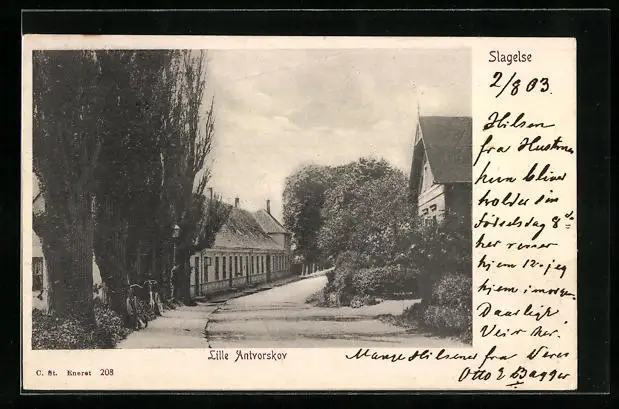 Slagelse
2/8 03.
Hilsen
fra Hustruen
hun bliver
holder sin
Fødselsdag 8de
her reiser
hjem 12 - jeg
hjem i morgen
Daarligt
Veir her.
Lille Antvorskov
Mange Hilsener fra Veres
Otto E Bagger
C. St. Eneret 208